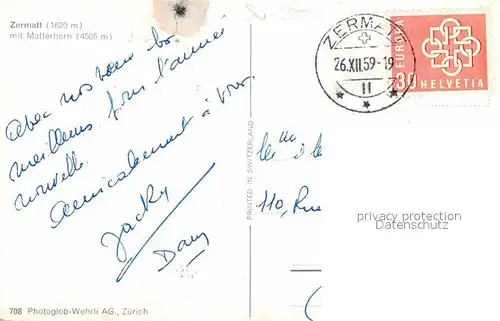 Zermatt (1620 m)
mit Matterhorn (4505 m)
Avec nos vœux les
meilleurs pour l'année
nouvelle.
Amicalement à vous.
Jacky
Dany
708 Photoglob-Wehrli AG., Zürich
PRINTED IN SWITZERLAND
ZERMATT
26.XII.59-19
11
EUROPA
30
HELVETIA
110, Rue
privacy protection
Datenschutz